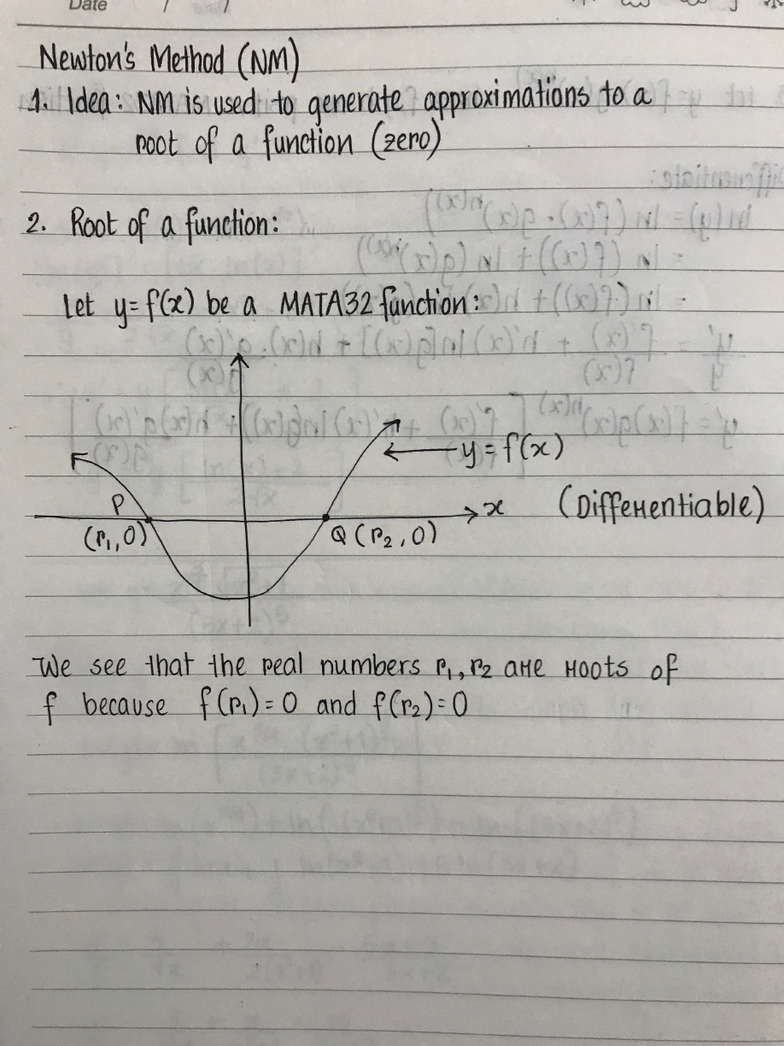 Date / /
Newton's Method (NM)
1. Idea: NM is used to generate approximations to a
root of a function (zero)
2. Root of a function:
Let y=f(x) be a MATA32 function:
y=f(x)
P
x
(Differentiable)
(r₁,0)
Q (r₂,0)
We see that the real numbers r₁, r₂ are roots of
f because f(r₁)=0 and f(r₂)=0